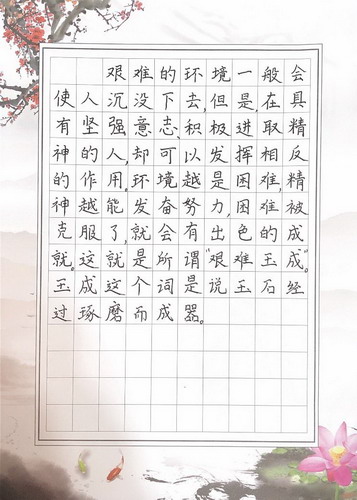 艰难的环境一般会
使人沉没下去,但是,在具
有坚强意志、积极进取精
神的人,却可以发挥相反
的作用,环境越是困难,精
神越能发奋努力,困难被
克服了,就会有出色的成
就。这就是所谓“艰难玉成”。
玉成这个词是说玉石经
过琢磨而成器。